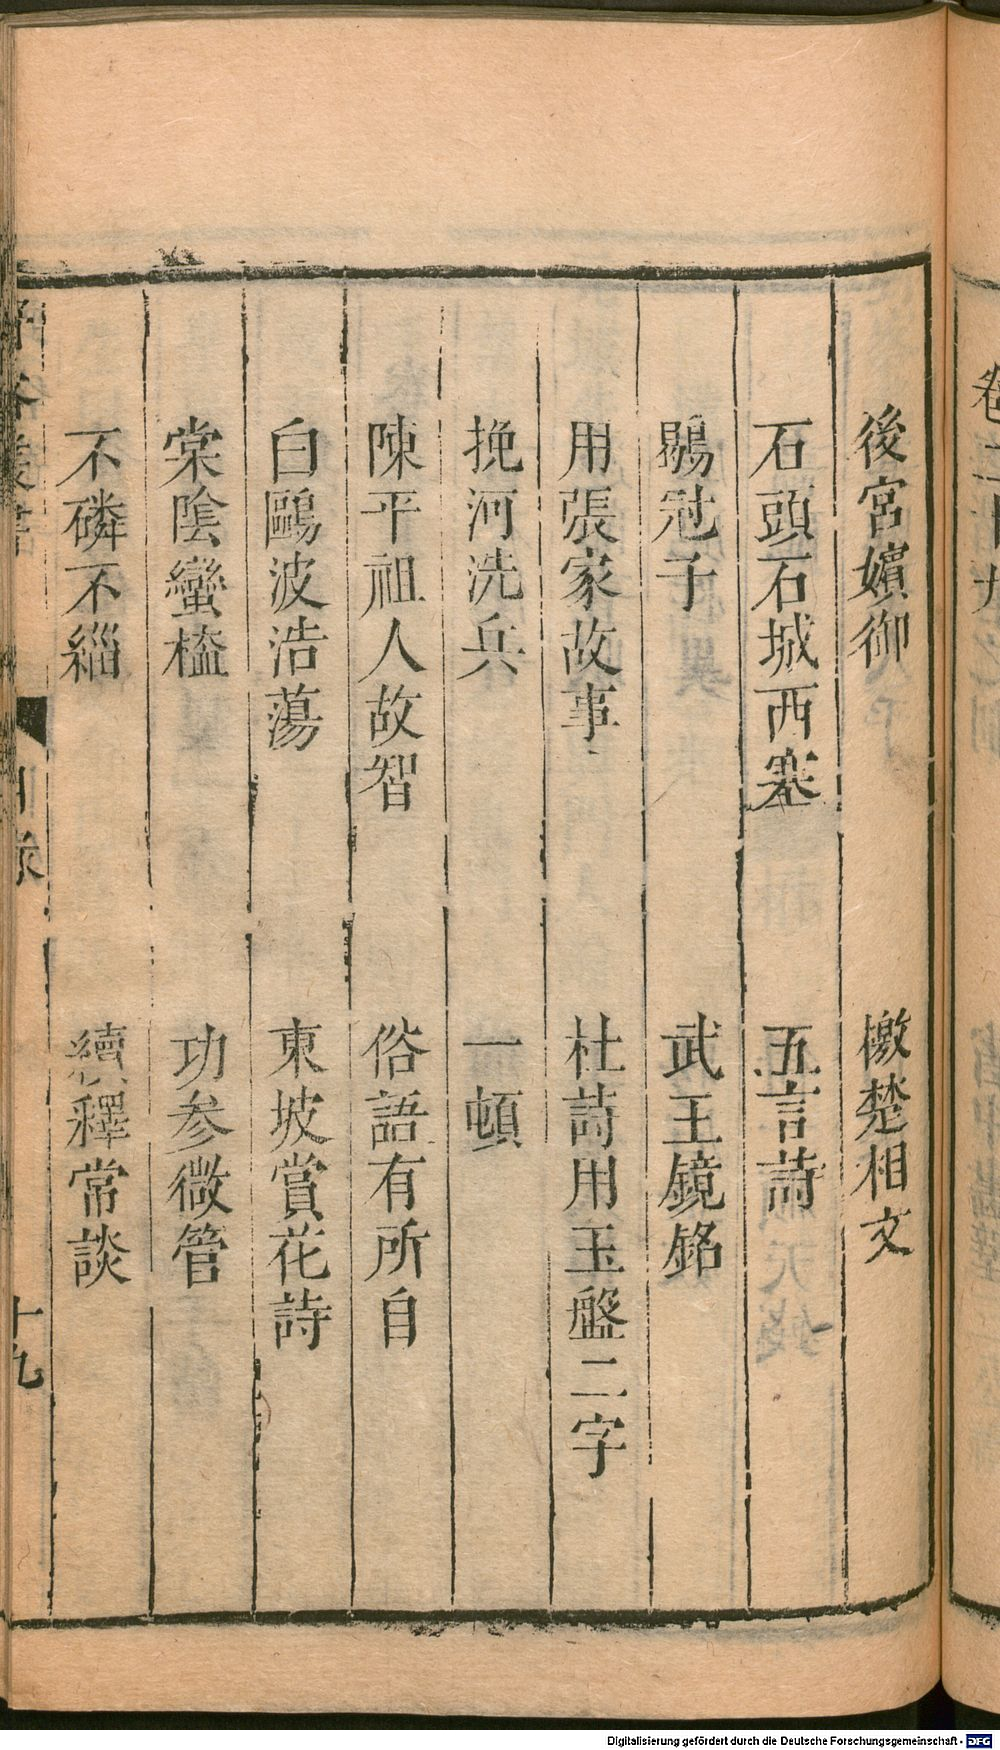 後宮嬪御　檄楚相文
石頭石城西塞　五言詩
鶡冠子　武王鏡銘
用張家故事　杜詩用玉盤二字
挽河洗兵　一頓
陳平祖人故智　俗語有所自
白鷗波浩蕩　東坡賞花詩
棠陰蠻榼　功參微管
不磷不緇　續釋常談
目錄　十九
Digitalisierung gefördert durch die Deutsche Forschungsgemeinschaft - DFG